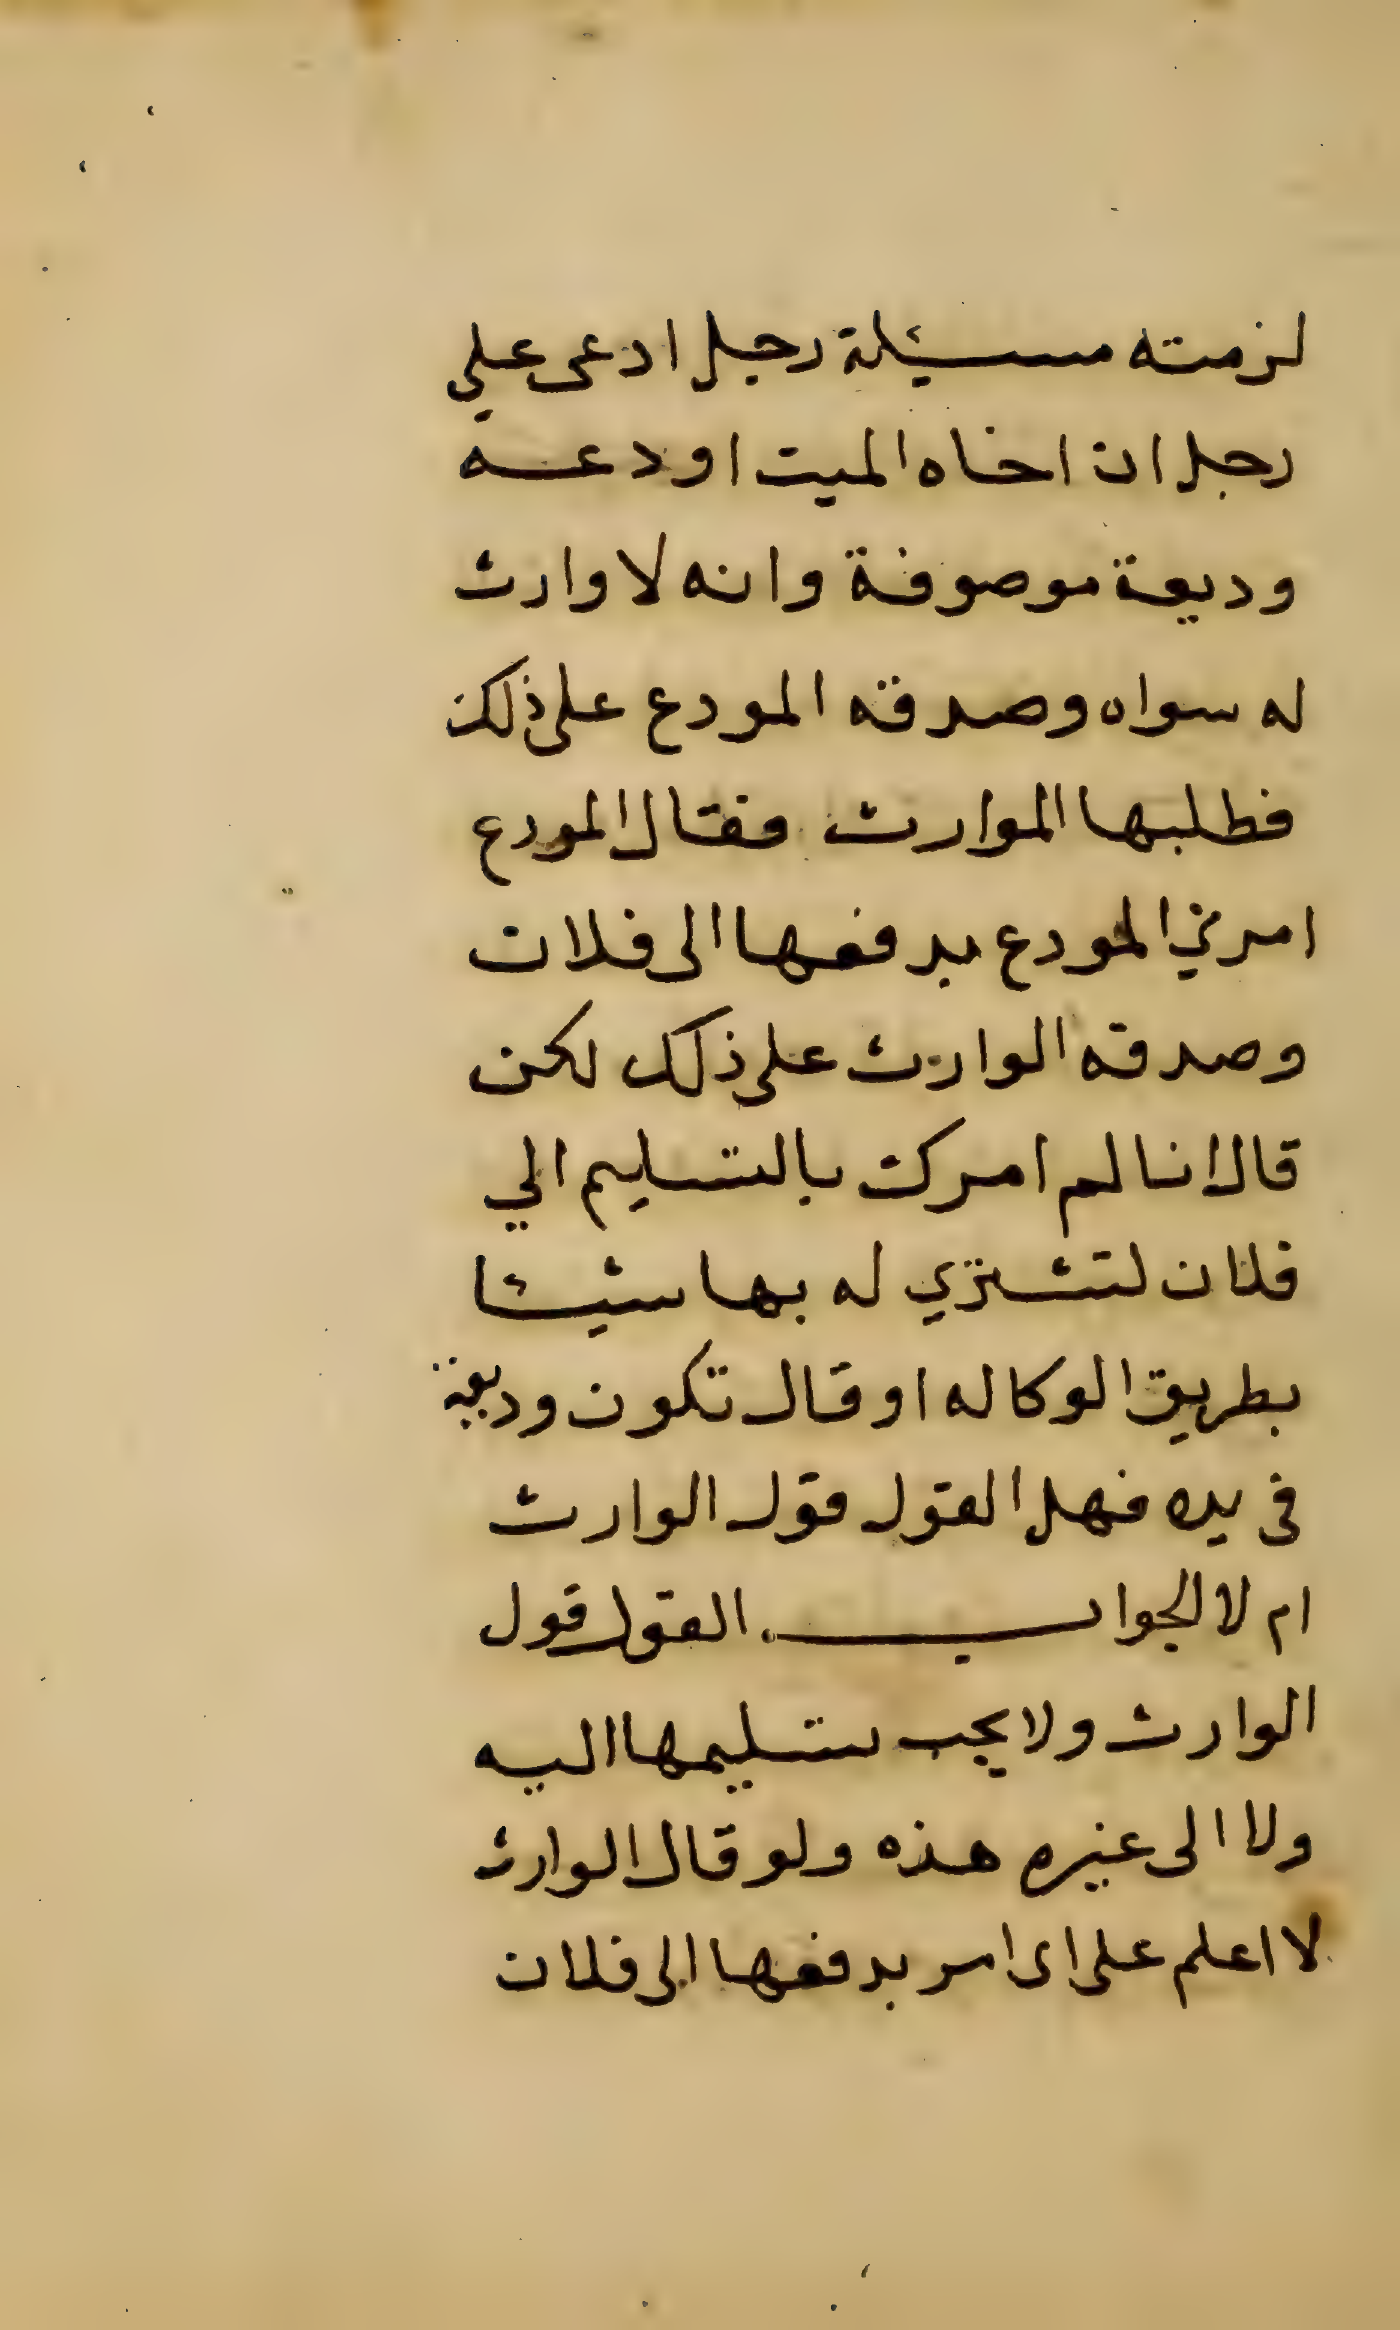 لزمته مسئلة رجل ادعى علي
رجل ان اخاه الميت اودعه
وديعة موصوفة وانه لا وارث
له سواه وصدقه المودع على ذلك
فطلبها الموارث فقال المودع
امرني المودع بدفعها الى فلان
وصدقه الوارث على ذلك لكن
قال انا لم امرك بالتسليم الي
فلان لتشتري له بها شيئا
بطريق الوكاله او قال تكون وديعة
فى يده فهل القول قول الوارث
ام لا الجواب القول قول
الوارث ولا يجب تسليمها اليه
ولا الى غيره هذه ولو قال الوارث
لا اعلم على اى امر بدفعها الى فلان